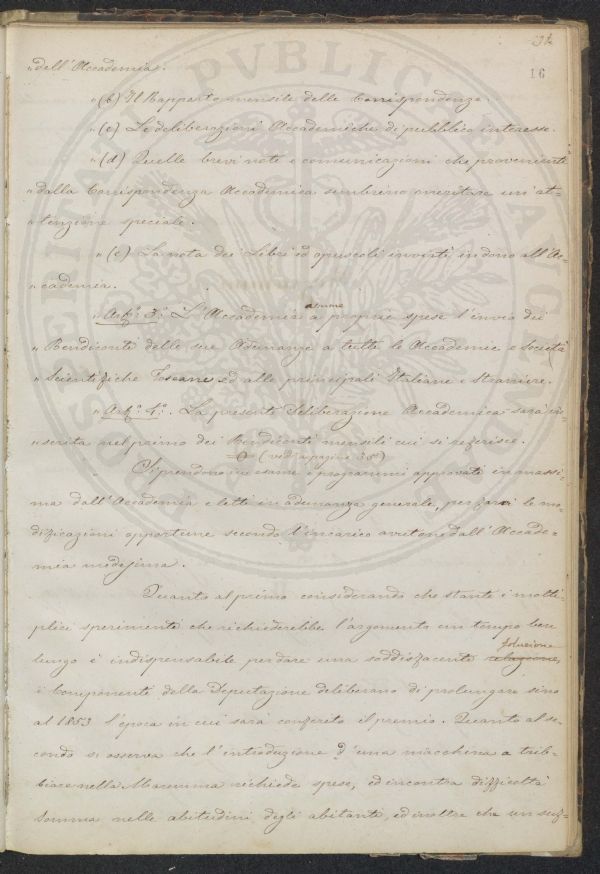 16
„ dell'Accademia.
„ (b) Il Rapporto mensile delle Corrispondenze.
„ (c) Le deliberazioni Accademiche di pubblico interesse.
„ (d) Quelle brevi note e comunicazioni che provenienti
„ dalla Corrispondenza Accademica sembrino meritare un'at=
„ tenzione speciale.
„ (e) La nota dei Libri ed opuscoli inviati in dono all'Ac=
„ cademia.
„ Art.° 3.° L'Accademia assume a proprie spese l'invio dei
„ Rendiconti delle sue Adunanze a tutte le Accademie e Società
„ Scientifiche Toscane ed alle principali Italiane e Straniere.
„ Art.° 4.° La presente Deliberazione Accademica sarà in=
„ serita nel primo dei Rendiconti mensili cui si referisce.
(vedi a pagina 38)
Si prendono in esame i programmi approvati in massi=
ma dall'Accademia e letti in adunanza generale, per farvi le mo=
dificazioni opportune secondo l'incarico avutone dall'Accade=
mia medesima.
Quanto al primo considerando che stante i molti=
plici sperimenti che richiederebbe l'argomento un tempo ben
lungo è indispensabile per dare una soddisfacente relazione, soluzione
i Componenti della Deputazione deliberano di prolungare sino
al 1853 l'epoca in cui sarà conferito il premio. Quanto al se=
condo si osserva che l'introduzione d'una macchina a treb=
biare nella Maremma richiede spese, ed incontra difficoltà
somma nelle abitudini degli abitanti, ed inoltre che un suf=
POSTERITATI PVBLICAE AVGENDAE